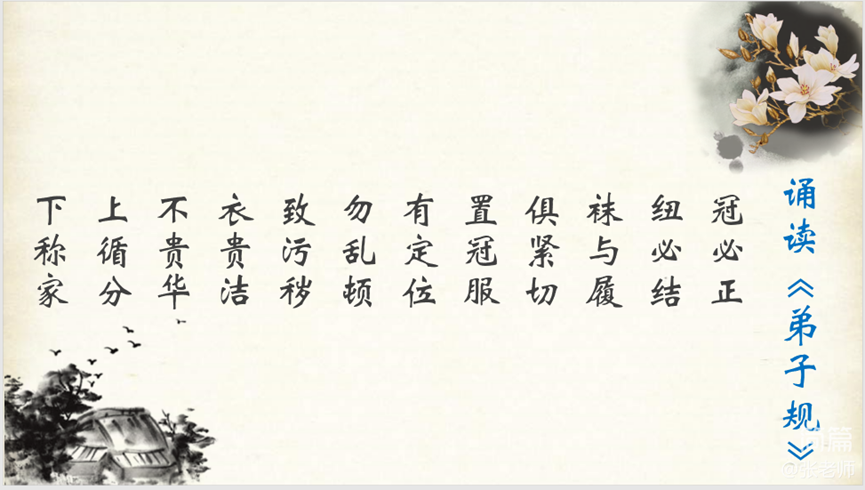 诵读《弟子规》
冠必正
纽必结
袜与履
俱紧切
置冠服
有定位
勿乱顿
致污秽
衣贵洁
不贵华
上循分
下称家
@张老师